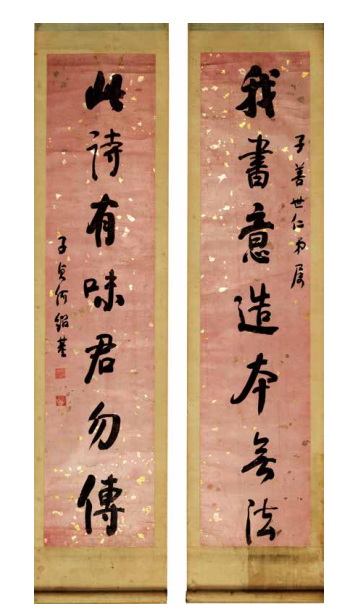 我書意造本无法
子善世仁弟属
此诗有味君勿傳
子貞何紹基